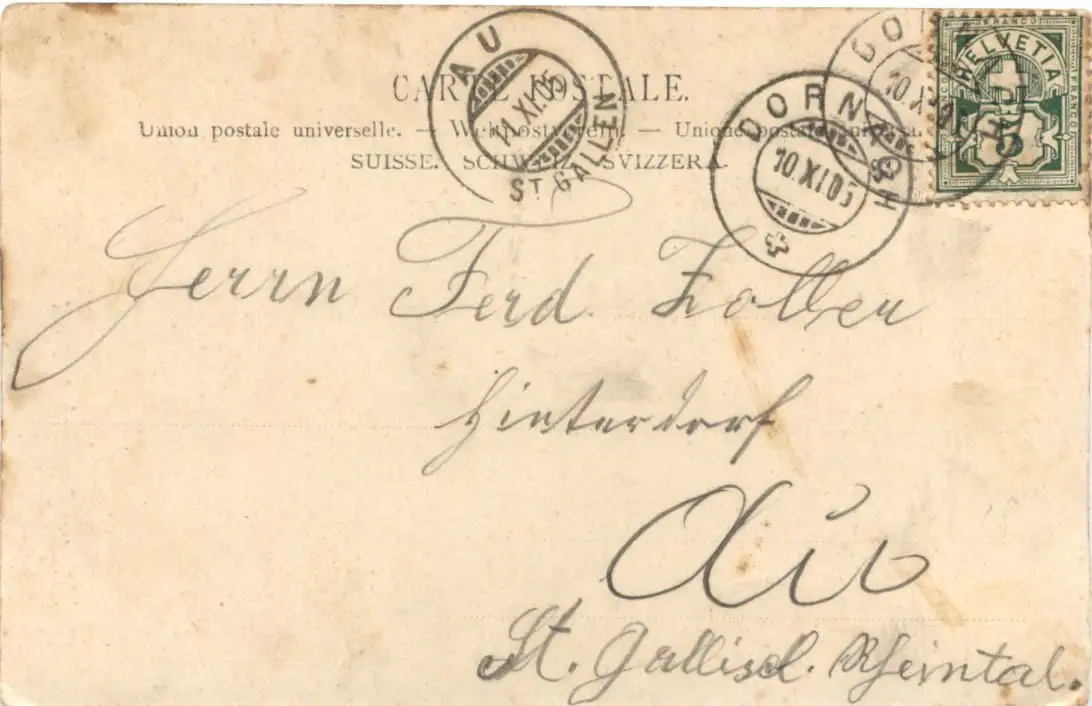 CARTE POSTALE.
Union postale universelle. — Weltpostverein. — Unione postale universa
SUISSE. SCHWEIZ. SVIZZERA.
AU
11 XI.05
ST. GALLEN
DORNACH
10 XI.05
DO
10.X
FRANCO
HELVETIA
FRANCO
5
Herrn Ferd. Zoller
Hinterdorf
Au
St. Gallisch. Rheintal.